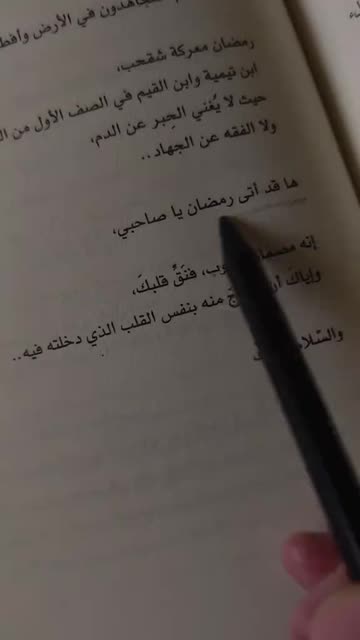 المجاهدون في الأرض وأفط
رمضان معركة شقحب،
ابن تيمية وابن القيم في الصف الأول من
حيث لا يُغني الحِبر عن الدم،
ولا الفقه عن الجهاد..
ها قد أتى رمضان يا صاحبي،
إنه فنَقِّ قلبكَ،
وإياكَ منه بنفس القلب الذي دخلته فيه..